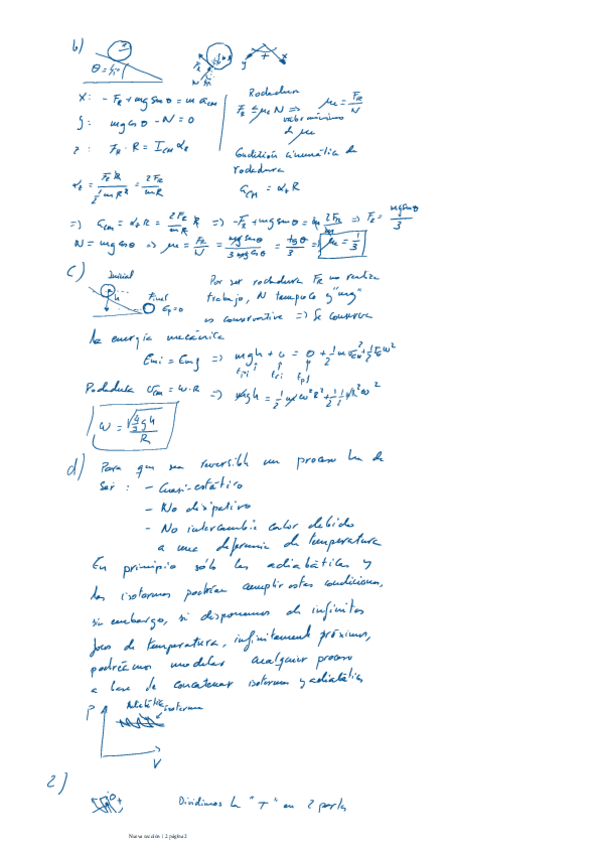 b)
θ = π/4
x: - F_R + mg senθ = m a_CM
y: mg cosθ - N = 0
z: F_R · R = I_CM α_z
Rodadura
F_R ≤ μ_e N => μ_e = F_R/N
valor mínimo
de μ_e
Condición cinemática de
rodadura
a_CM = α_z R
α_z = F_R R / ½ m R² = 2F_R / mR
=> a_CM = α_z R = 2F_R/mR R => -F_R + mg senθ = m 2F_R/m => F_R = mg senθ/3
N = mg cosθ => μ_e = F_R/N = mg senθ / 3 mg cosθ = tgθ/3 => μ_e = 1/3
c) Inicial
h
Final
E_p=0
Por ser rodadura F_R no realiza
trabajo, N tampoco y "mg"
es conservativa => Se conserva
la energía mecánica
E_mi = E_mf => mgh + 0 = 0 + ½ m v_CM² + ½ I_CM ω²
Rodadura v_CM = ω·R => mgh = ½ m ω² R² + ½ ½ m R² ω²
ω = √(4/3 gh) / R
d) Para que sea reversible un proceso ha de
ser: - Cuasi-estático
- No disipativo
- No intercambie calor debido
a una diferencia de temperatura
En principio sólo las adiabáticas y
las isotermas podrían cumplir estas condiciones,
sin embargo, si disponemos de infinitos
focos de temperatura, infinitamente próximos,
podríamos modelar cualquier proceso
a base de concatenar isotermas y adiabáticas
P
Adiabática
isoterma
V
2)
Dividimos la "T" en 2 partes
Nueva sección 1 2 página 2